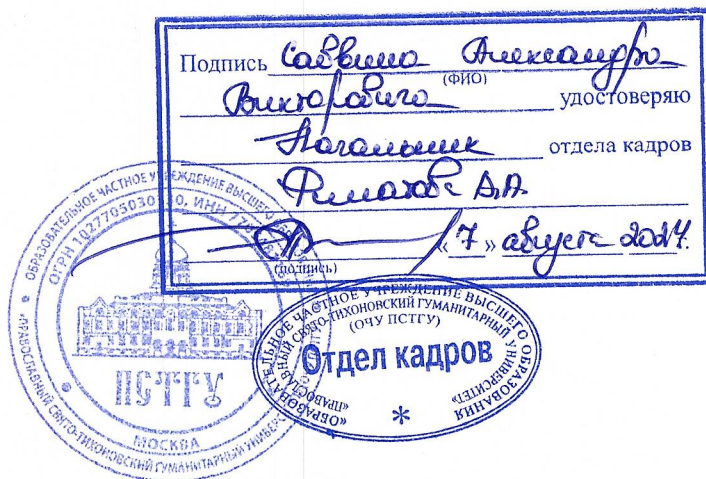 Подпись Саввина Александра
(ФИО)
Викторовича удостоверяю
Начальник отдела кадров
А.А.
(подпись)
«7» августа 2024.
ОБРАЗОВАТЕЛЬНОЕ ЧАСТНОЕ УЧРЕЖДЕНИЕ ВЫСШЕГО
«ПРАВОСЛАВНЫЙ СВЯТО-ТИХОНОВСКИЙ ГУМАНИТАРНЫЙ
ОГРН ИНН
ПСТГУ
МОСКВА
«ОБРАЗОВАТЕЛЬНОЕ ЧАСТНОЕ УЧРЕЖДЕНИЕ ВЫСШЕГО ОБРАЗОВАНИЯ
«ПРАВОСЛАВНЫЙ СВЯТО-ТИХОНОВСКИЙ ГУМАНИТАРНЫЙ УНИВЕРСИТЕТ»
(ОЧУ ПСТГУ)
Отдел кадров